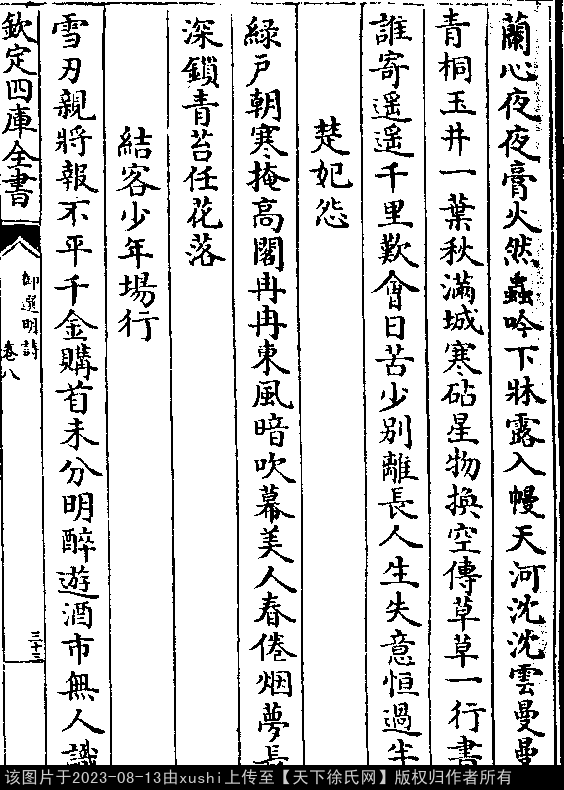 蘭心夜夜膏火然蟲吟下牀露入幔天河沈沈雲曼曼
青桐玉井一葉秋滿城寒砧星物換空傳草草一行書
誰寄遥遥千里歎會日苦少别離長人生失意恒過半
楚妃怨
緑戸朝寒掩高閣冉冉東風暗吹幕美人春倦烟夢長
深鎖青苔任花落
結客少年場行
雪刃親將報不平千金購首未分明醉遊酒市無人識
欽定四庫全書
御選明詩
卷八
三十三
该图片于2023-08-13由xushi上传至【天下徐氏网】版权归作者所有